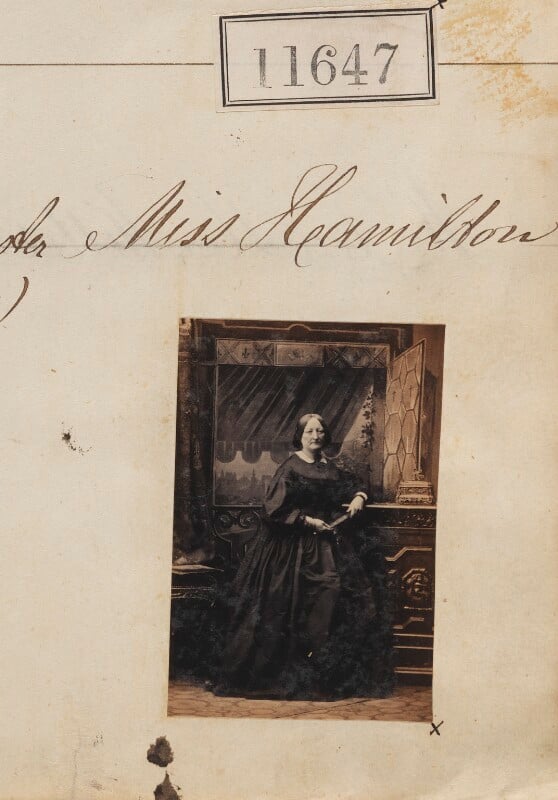 11647
Miss Hamilton
)
x